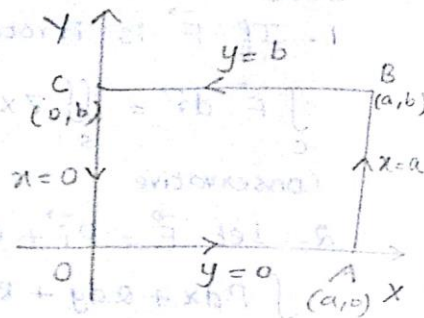 Y
y = b
C
(0,b)
B
(a,b)
x=0
x=a
O
y=0
A
(a,0)
X